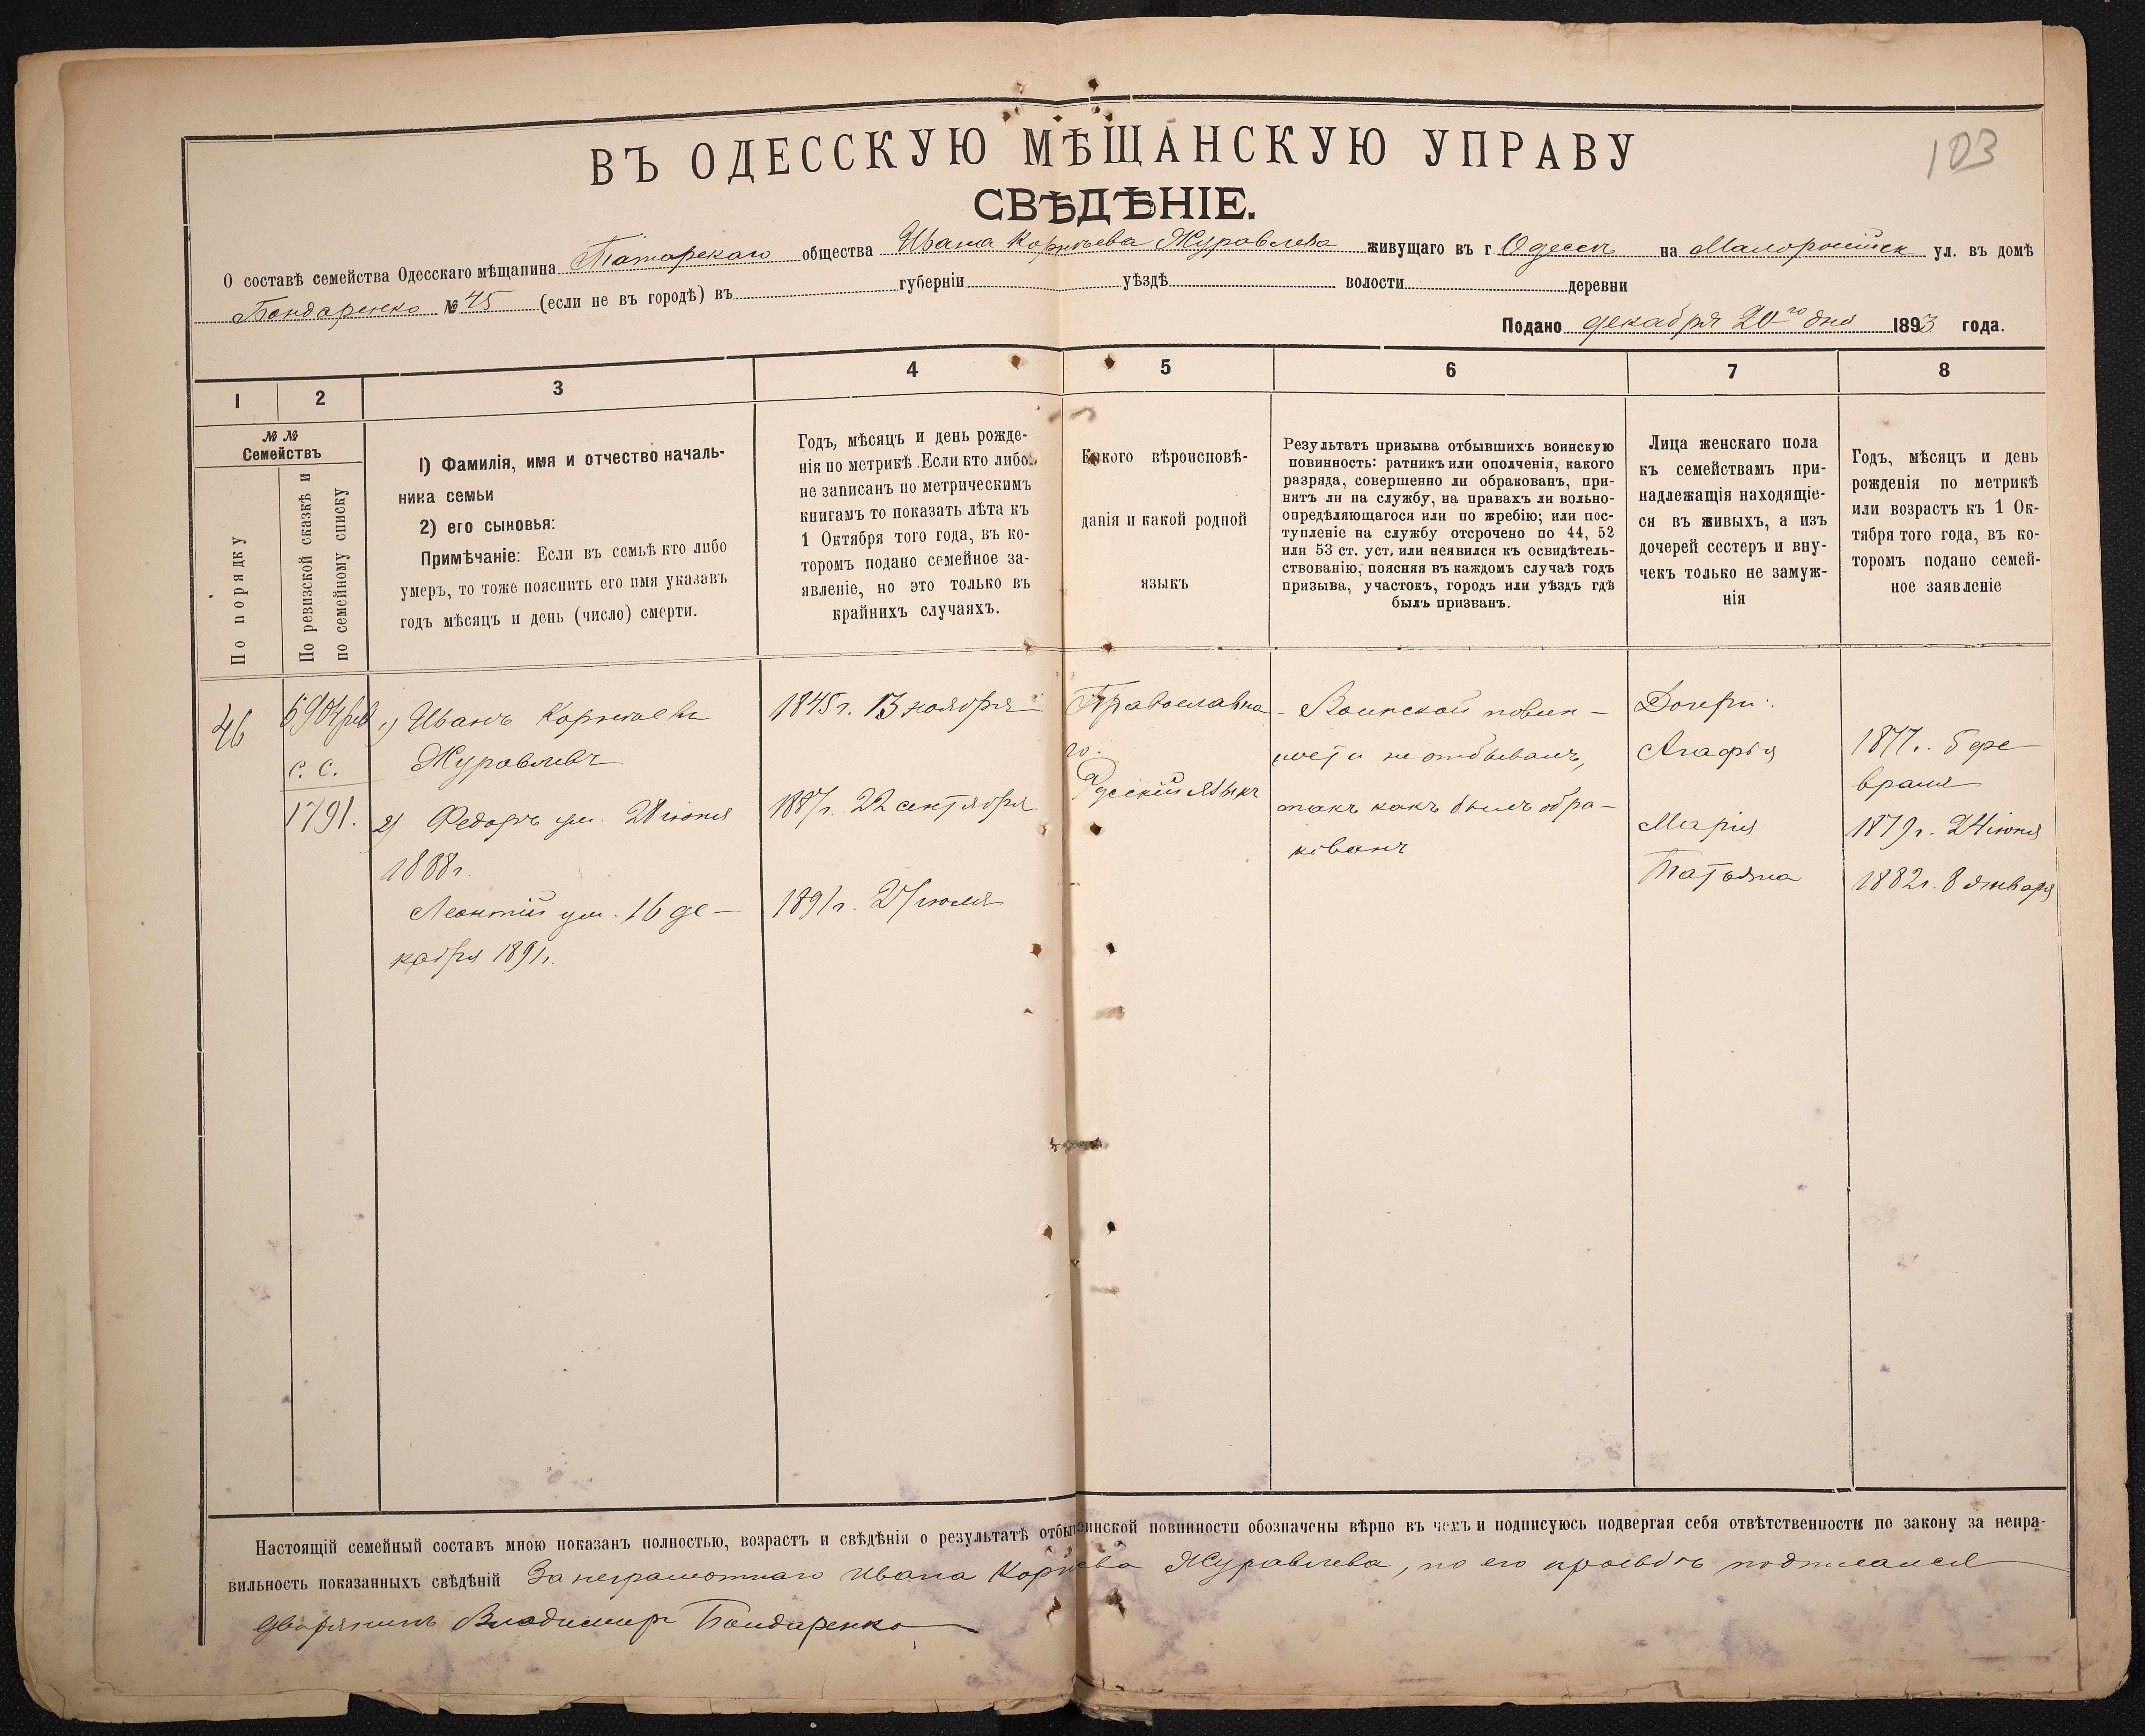 103
ВЪ ОДЕССКУЮ МѢЩАНСКУЮ УПРАВУ
СВѢДѢНІЕ.
О составѣ семейства Одесскаго мѣщанина Татарскаго общества Ивана Корнѣева Журавлева живущаго въ г Одессѣ на Малоросійск ул. въ домѣ
Бондаренко № 45 (если не въ городѣ) въ губерніи уѣздѣ волости деревни
Подано декабря 20го дня 1893 года.
1 2 3 4 5 6 7 8
№ №
Семействъ
По порядку
По ревизской сказкѣ и
по семейному списку
1) Фамилія, имя и отчество началь-
ника семьи
2) его сыновья:
Примѣчаніе: Если въ семьѣ кто либо
умеръ, то тоже пояснить его имя указавъ
годъ мѣсяцъ и день (число) смерти.
Годъ, мѣсяцъ и день рожде-
нія по метрикѣ. Если кто либо
не записанъ по метрическимъ
книгамъ то показать лѣта къ
1 Октября того года, въ ко-
торомъ подано семейное за-
явленіе, но это только въ
крайнихъ случаяхъ.
Какого вѣроисповѣ-
данія и какой родной
языкъ
Результатъ призыва отбывшихъ воинскую
повинность: ратникъ или ополченія, какого
разряда, совершенно ли обракованъ, при-
нятъ ли на службу, на правахъ ли вольно-
опредѣляющагося или по жребію; или пос-
тупленіе на службу отсрочено по 44, 52
или 53 ст. уст, или неявился къ освидѣтель-
ствованію, поясняя въ каждомъ случаѣ годъ
призыва, участокъ, городъ или уѣздъ гдѣ
былъ призванъ.
Лица женскаго пола
къ семействамъ при-
надлежащія находящіе-
ся въ живыхъ, а изъ
дочерей сестеръ и вну-
чекъ только не замуж-
нія
Годъ, мѣсяцъ и день
рожденія по метрикѣ
или возрастъ къ 1 Ок-
тября того года, въ ко-
торомъ подано семей-
ное заявленіе
46
с. с.
1791.
1) Иванъ Корнѣевъ
Журавлевъ
2) Федоръ ум. 28 іюня
1888г.
Леонтій ум. 16 де-
кабря 1891г.
1845г. 13 ноября
1887г. 22 сентября
1891г. 27 іюля
Православна
го.
Русскій языкъ
Воинской повин-
ности не отбывалъ,
такъ какъ былъ обра-
кованъ
Дочери:
Агафья
Марія
Татьяна
1877г. 5 фе
враля
1879г. 24 іюня
1882г. 8 января
Настоящій семейный составъ мною показанъ полностью, возрастъ и свѣдѣнія о результатѣ воинской повинности обозначены вѣрно въ чемъ и подписуюсь подвергая себя отвѣтственности по закону за непра-
вильность показанныхъ свѣдѣній За неграмотнаго Ивана Корнѣева Журавлева, по его просьбѣ подписался
дворянинъ Владимиръ Бондаренко